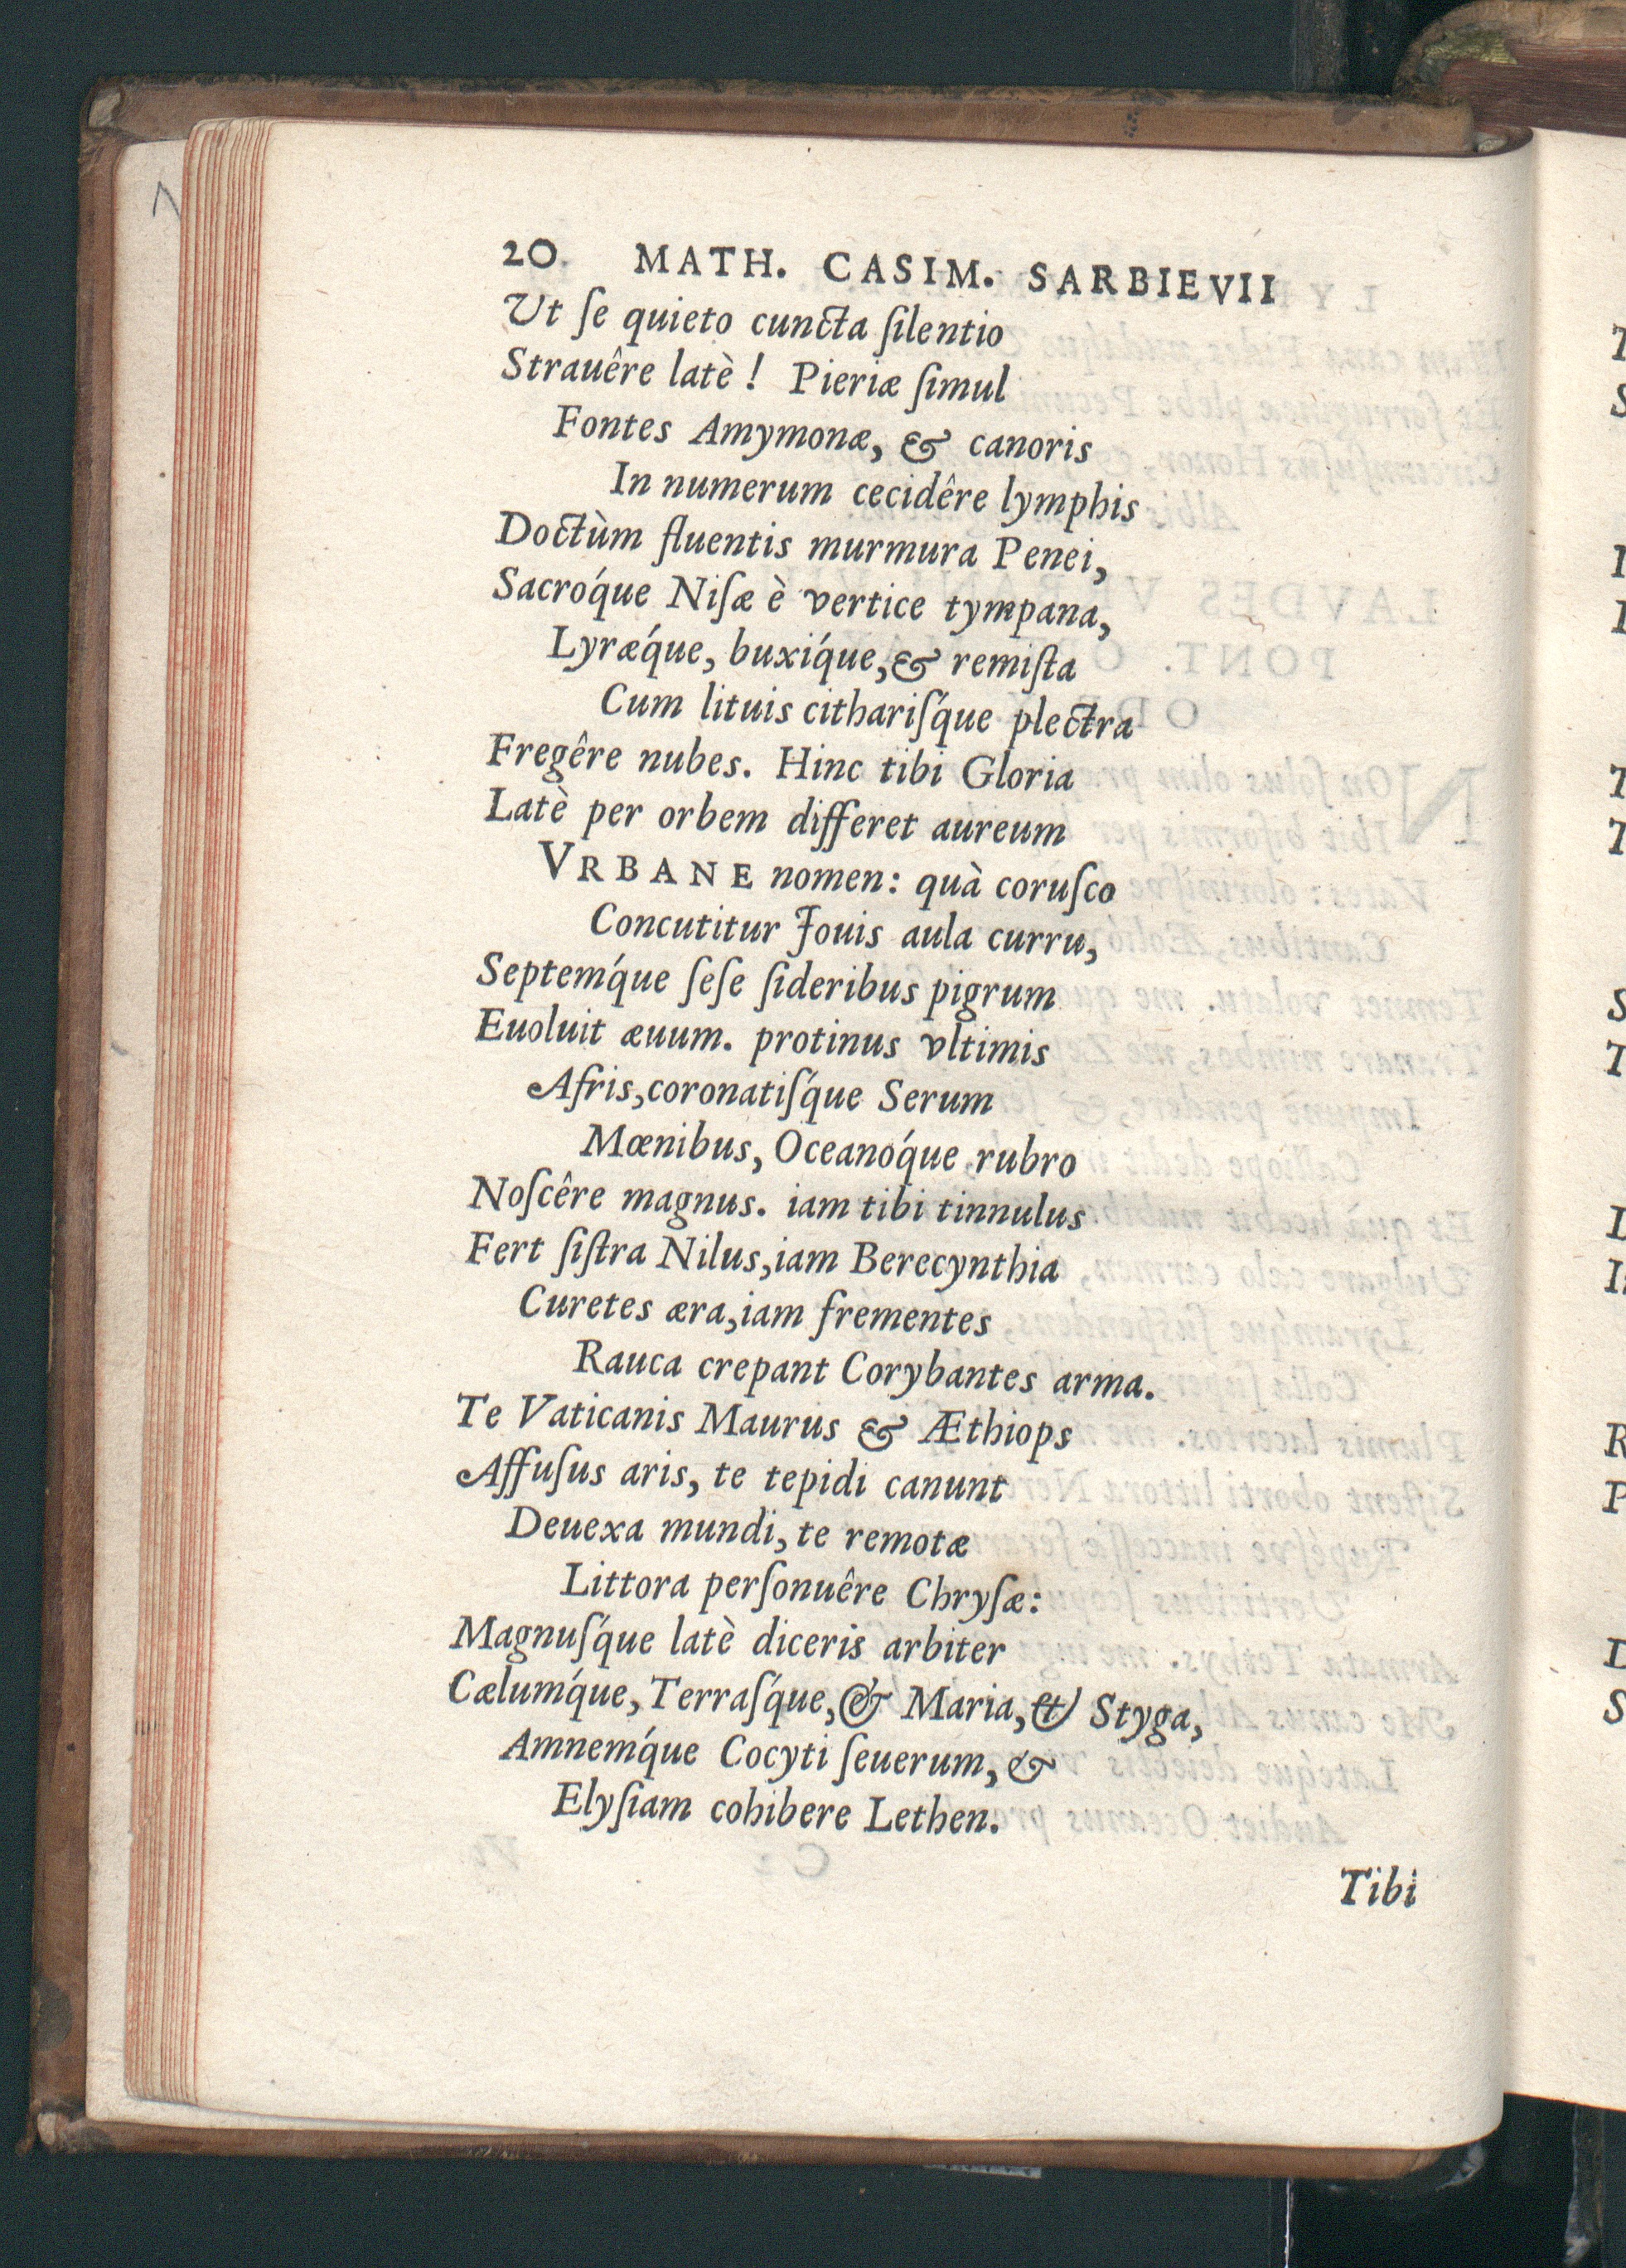 20 MATH. CASIM. SARBIEVII
Ut ſe quieto cuncta ſilentio
Strauêre latè ! Pieriæ ſimul
Fontes Amymonæ, & canoris
In numerum cecidêre lymphis
Doctùm fluentis murmura Penei,
Sacróque Niſæ è vertice tympana,
Lyrǽque, buxíque, & remiſta
Cum lituis cithariſq́ue plectra
Fregêre nubes. Hinc tibi Gloria
Latè per orbem differet aureum
VRBANE nomen: quà coruſco
Concutitur Jouis aula curru,
Septemq́ue ſeſe ſideribus pigrum
Euoluit æuum. protinus vltimis
Afris, coronatiſq́ue Serum
Mœnibus, Oceanóque rubro
Noſcêre magnus. iam tibi tinnulus
Fert ſiſtra Nilus, iam Berecynthia
Curetes æra, iam frementes
Rauca crepant Corybantes arma.
Te Vaticanis Maurus & Æthiops
Affuſus aris, te tepidi canunt
Deuexa mundi, te remotæ
Littora perſonuêre Chryſæ:
Magnuſq́ue latè diceris arbiter
Cælumq́ue, Terraſq́ue, & Maria, & Styga,
Amnemq́ue Cocyti ſeuerum, &
Elyſiam cohibere Lethen.
Tibi